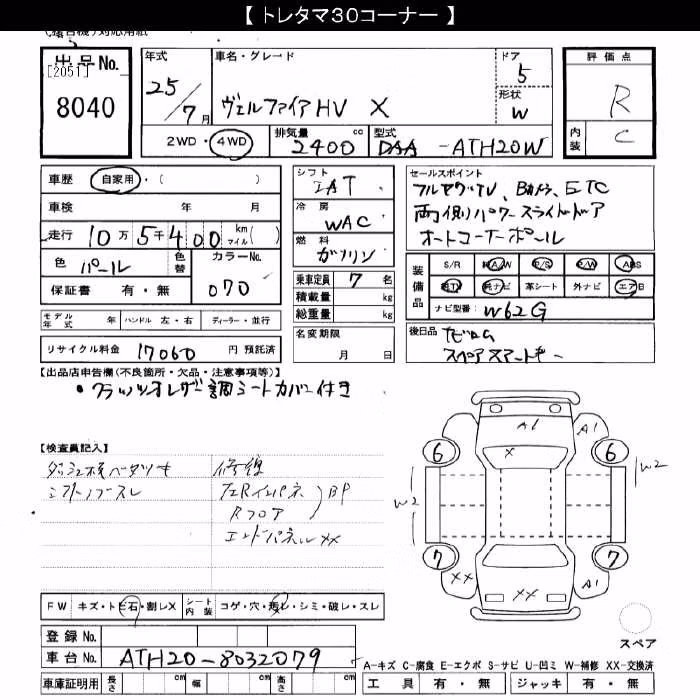 【 トレタマ30コーナー 】
出品No.
[2051]
8040
年式
25/7月
車名・グレード
ヴェルファイアHV X
ドア
5
形状
W
評価点
R
内装
C
2WD・4WD
排気量
2400 cc
型式
DAA -ATH20W
車歴 自家用・( )
車検 年 月
走行 10万5千400 km マイル( )
色 パール
色替
カラーNo. 070
保証書 有・無
シフト
IAT
冷房
WAC
燃料
ガソリン
乗車定員 7 名
積載量 kg
総重量 kg
セールスポイント
フルセグTV、Bカメラ、ETC
両側パワースライドドア
オートコーナーポール
装備品
S/R 純A/W P/S P/W ABS
純TV 純ナビ 革シート 外ナビ エアB
ナビ型番 W62G
モデル年式 年 ハンドル 左・右 ディーラー・並行
名変期限
月 日
後日品
ナビROM
スペアスマートキー
リサイクル料金 17060 円 預託済
【出品店申告欄(不良箇所・欠品・注意事項等)】
・クラッツィオレザー調シートカバー付き
【検査員記入】
修復
シフトノブスレ
左Rインパネ
Rフロア
BP
エンドパネルXX
A1
A1
X
6
6
W2
W2
7
7
XX
XX
A1
FW キズ・トビ石・割レX シート内装 コゲ・穴・汚レ・シミ・破レ・スレ
スペア
登録No.
車台No. ATH20-8032079
A-キズ C-腐食 E-エクボ S-サビ U-凹ミ W-補修 XX-交換済
車庫証明用 長さ cm 幅 cm 高さ cm
工具 有・無 ジャッキ 有・無